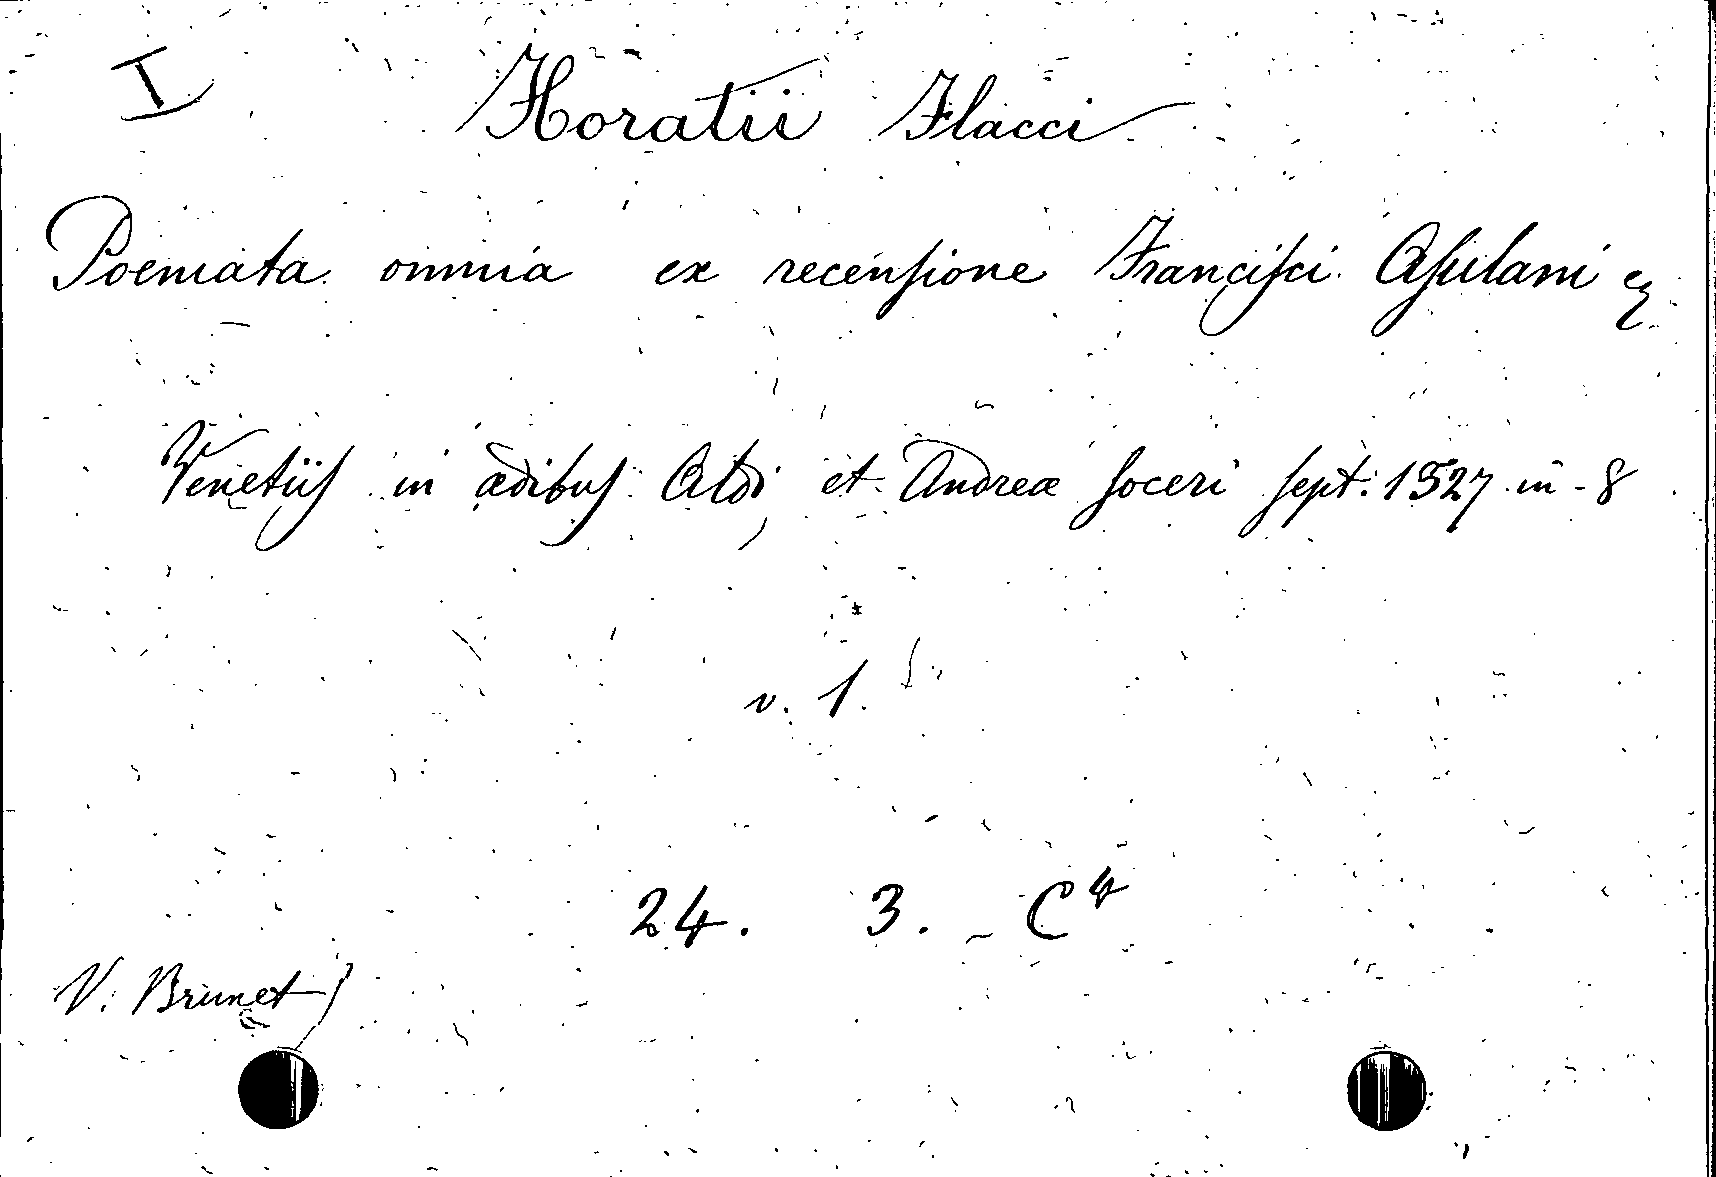 I Horatii Flacci
Poemata omnia ex recensione Francisci Asulani &
Venetiis in ædibus Aldi, et Andreæ soceri sept: 1527 in-8
v. 1.
24. 3. - C⁴
V. Brunet